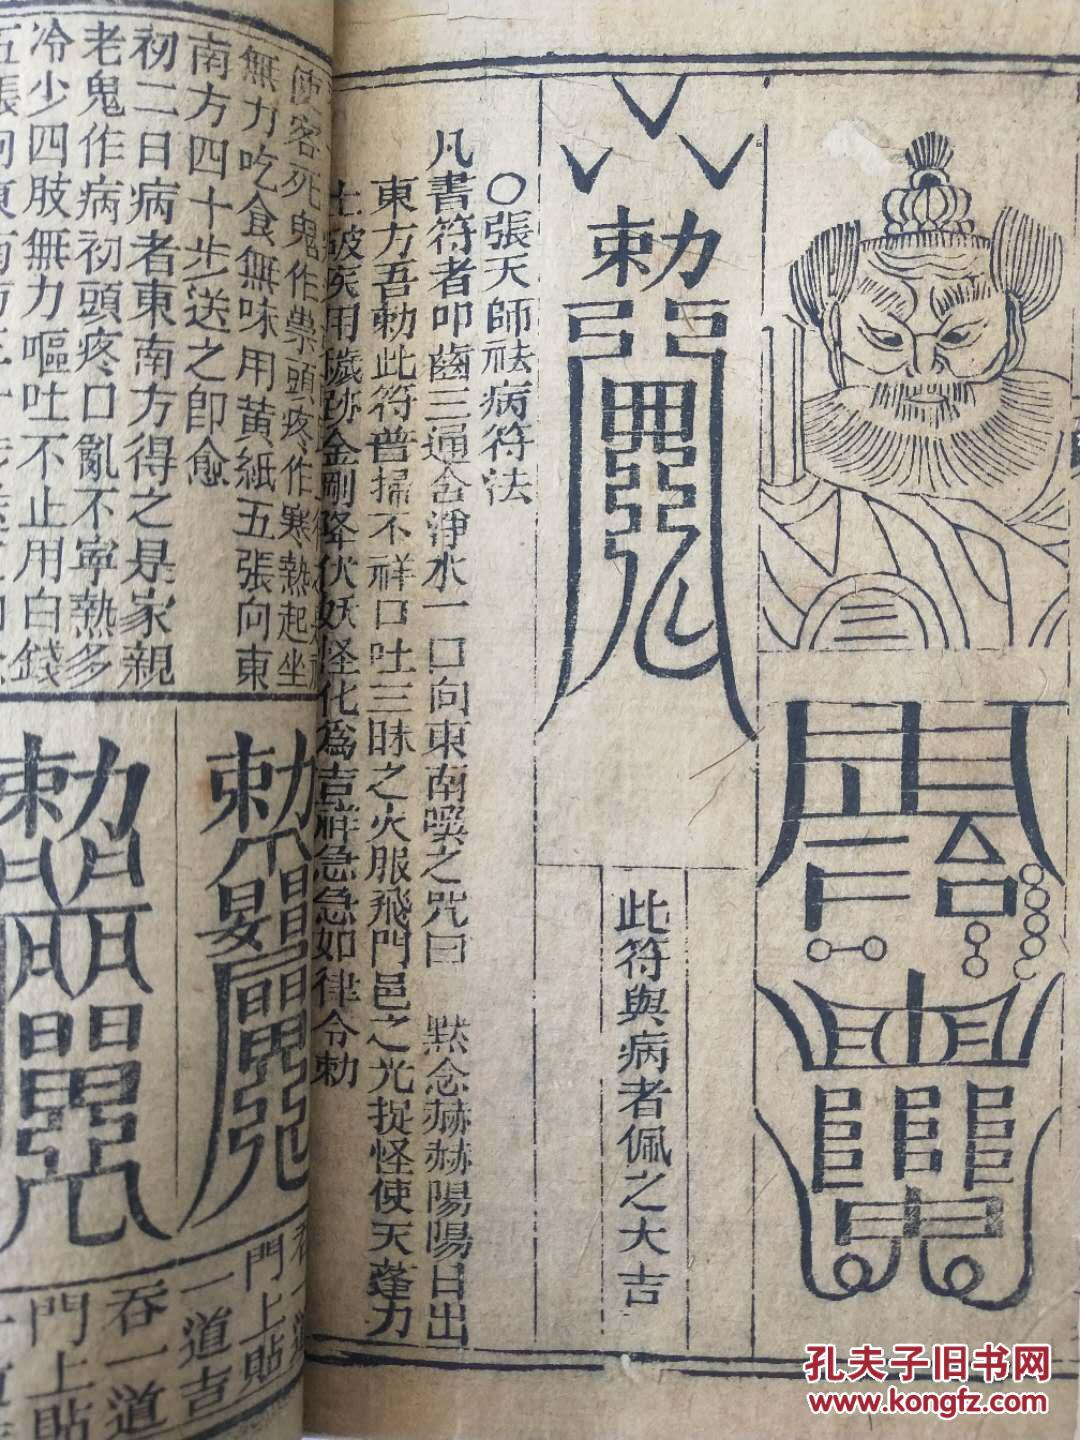 勅
此符與病者佩之大吉
〇張天師祛病符法
凡書符者叩齒三通含淨水一口向東南噀之咒曰 默念赫赫陽陽日出
東方吾勅此符普掃不祥口吐三昧之火服飛門邑之光捉怪使天蓬力
士破疾用穢跡金剛降伏妖怪化為吉祥急急如律令勅
使客死鬼作祟頭疼作寒熱起坐
無力吃食無味用黃紙五張向東
南方四十步送之即愈
初二日病者東南方得之是家親
老鬼作病初頭疼口亂不寧熱多
冷少四肢無力嘔吐不止用白錢
五張向東南方
勅
勅
門上貼
一道吉
吞一道
門上貼
孔夫子旧书网
www.kongfz.com